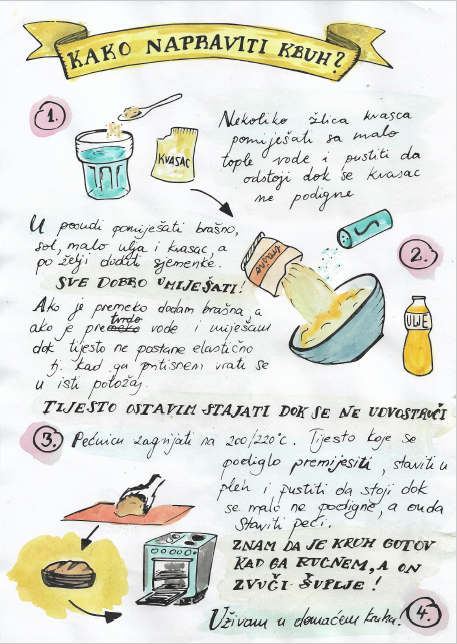 KAKO NAPRAVITI KRUH?
1.
Nekoliko žlica kvasca
pomiješati sa malo
tople vode i pustiti da
odstoji dok se kvasac
ne podigne
KVASAC
U posudi pomiješati brašno,
sol, malo ulja i kvasac, a
po želji dodati sjemenke.
SVE DOBRO UMIJEŠATI!
2.
brašno
ULJE
Ako je premeko dodam brašna, a
ako je pretvrdo vode i umiješam
dok tijesto ne postane elastično
tj. kad ga pritisnem vrati se
u isti položaj.
TIJESTO OSTAVIM STAJATI DOK SE NE UDVOSTRUČI
3.
Pećnicu zagrijati na 200/220°C. Tijesto koje se
podiglo premijesiti, staviti u
pleh i pustiti da stoji dok
se malo ne podigne, a onda
staviti peći.
ZNAM DA JE KRUH GOTOV
KAD GA KUCNEM, A ON
ZVUČI ŠUPLJE!
Uživam u domaćem kruhu!
4.